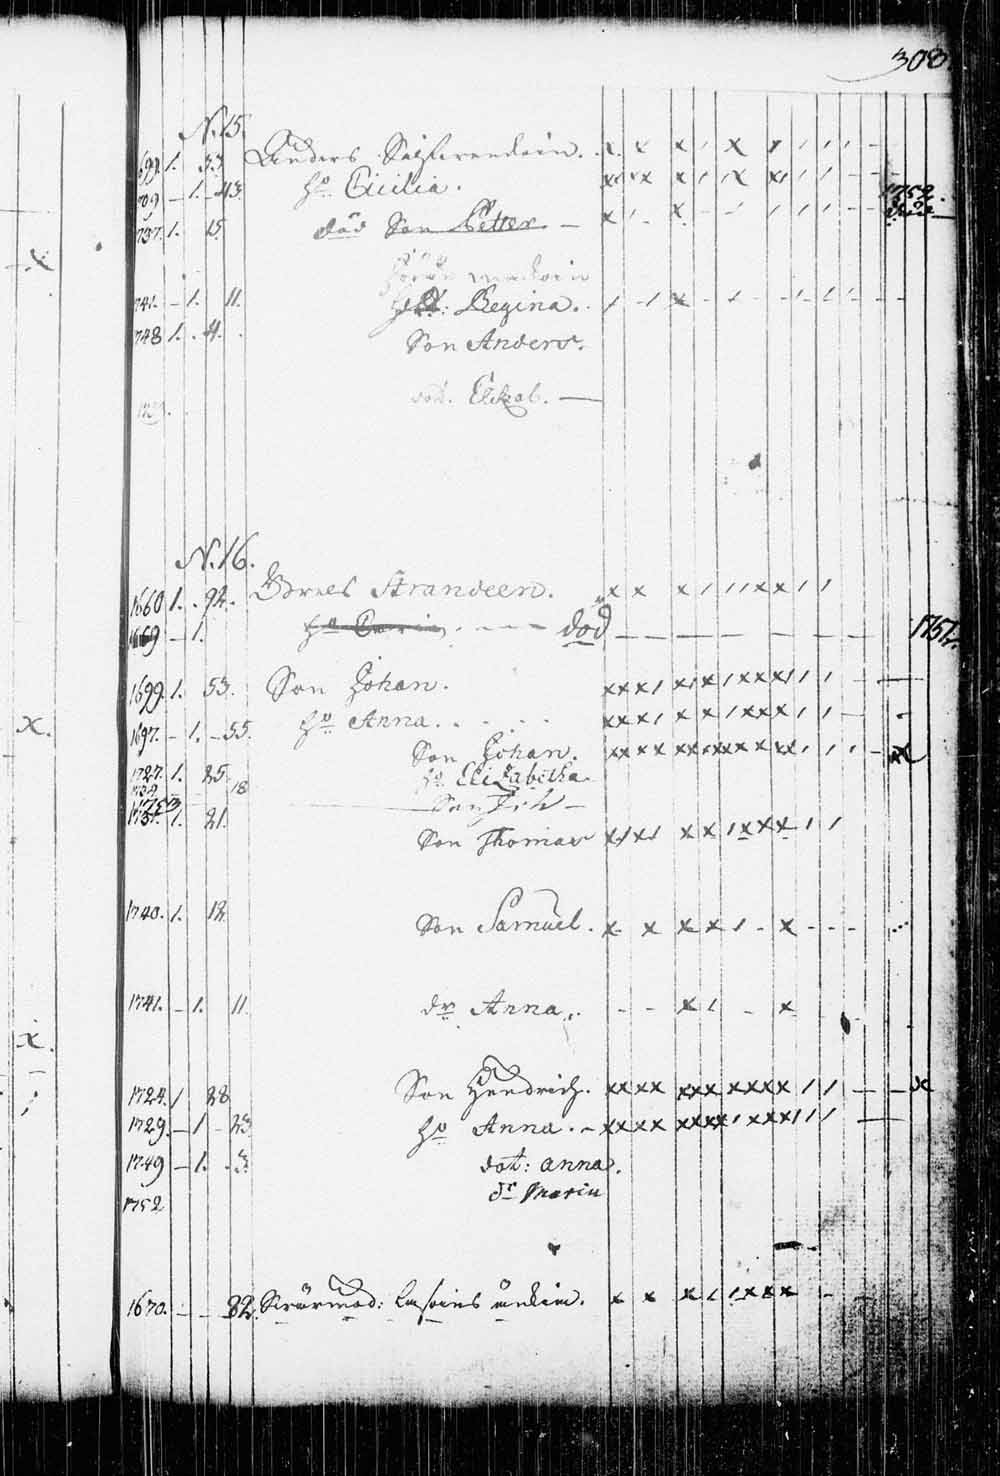 308
N. 15.
1699. 1. 53 Anders
1709 - 1. 43. hu Cicilia.
1752.
1737. 1. 15 död Son Petter
1741. - 1. 11. Regina.
1748 1. 4. Son Anders.
dot. Elizab.
N. 16.
1660 1. 92. Strandeen.
1669 - 1. hu död 1751.
1699. 1. 53. Son Johan.
1697. - 1. - 55. hu Anna.
Son Johan.
1727. 1. 25 hu Elizabetha.
18
1753 Son Joh
1731. 1. 21. Son Thomas
1740. 1. 12 Son Samuel.
1741. - 1. 11. dr Anna.
1724. 1 28 Son Hendrich.
1729. - 1 - 23 hu Anna.
1749 - 1. - 3. dot: anna.
1752 dr Maria
1670. - - 82. Svärmod: